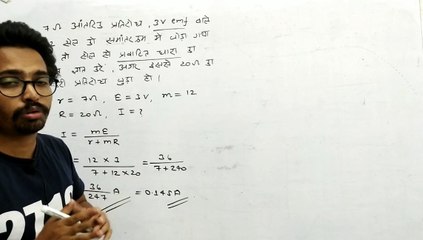 7Ω आंतरिक प्रतिरोध, 3V emf वाले
सेल को समांतरक्रम में जोड़ा गया
तो सेल से प्रवाहित धारा का
ज्ञात करें, अगर इससे 20Ω का
प्रतिरोध जुड़ा हो।
r = 7Ω, E = 3V, m = 12
R = 20Ω, I = ?
I = mE / r+mR
= 12 × 3 / 7 + 12 × 20 = 36 / 7 + 240
36 / 247 A = 0.145A